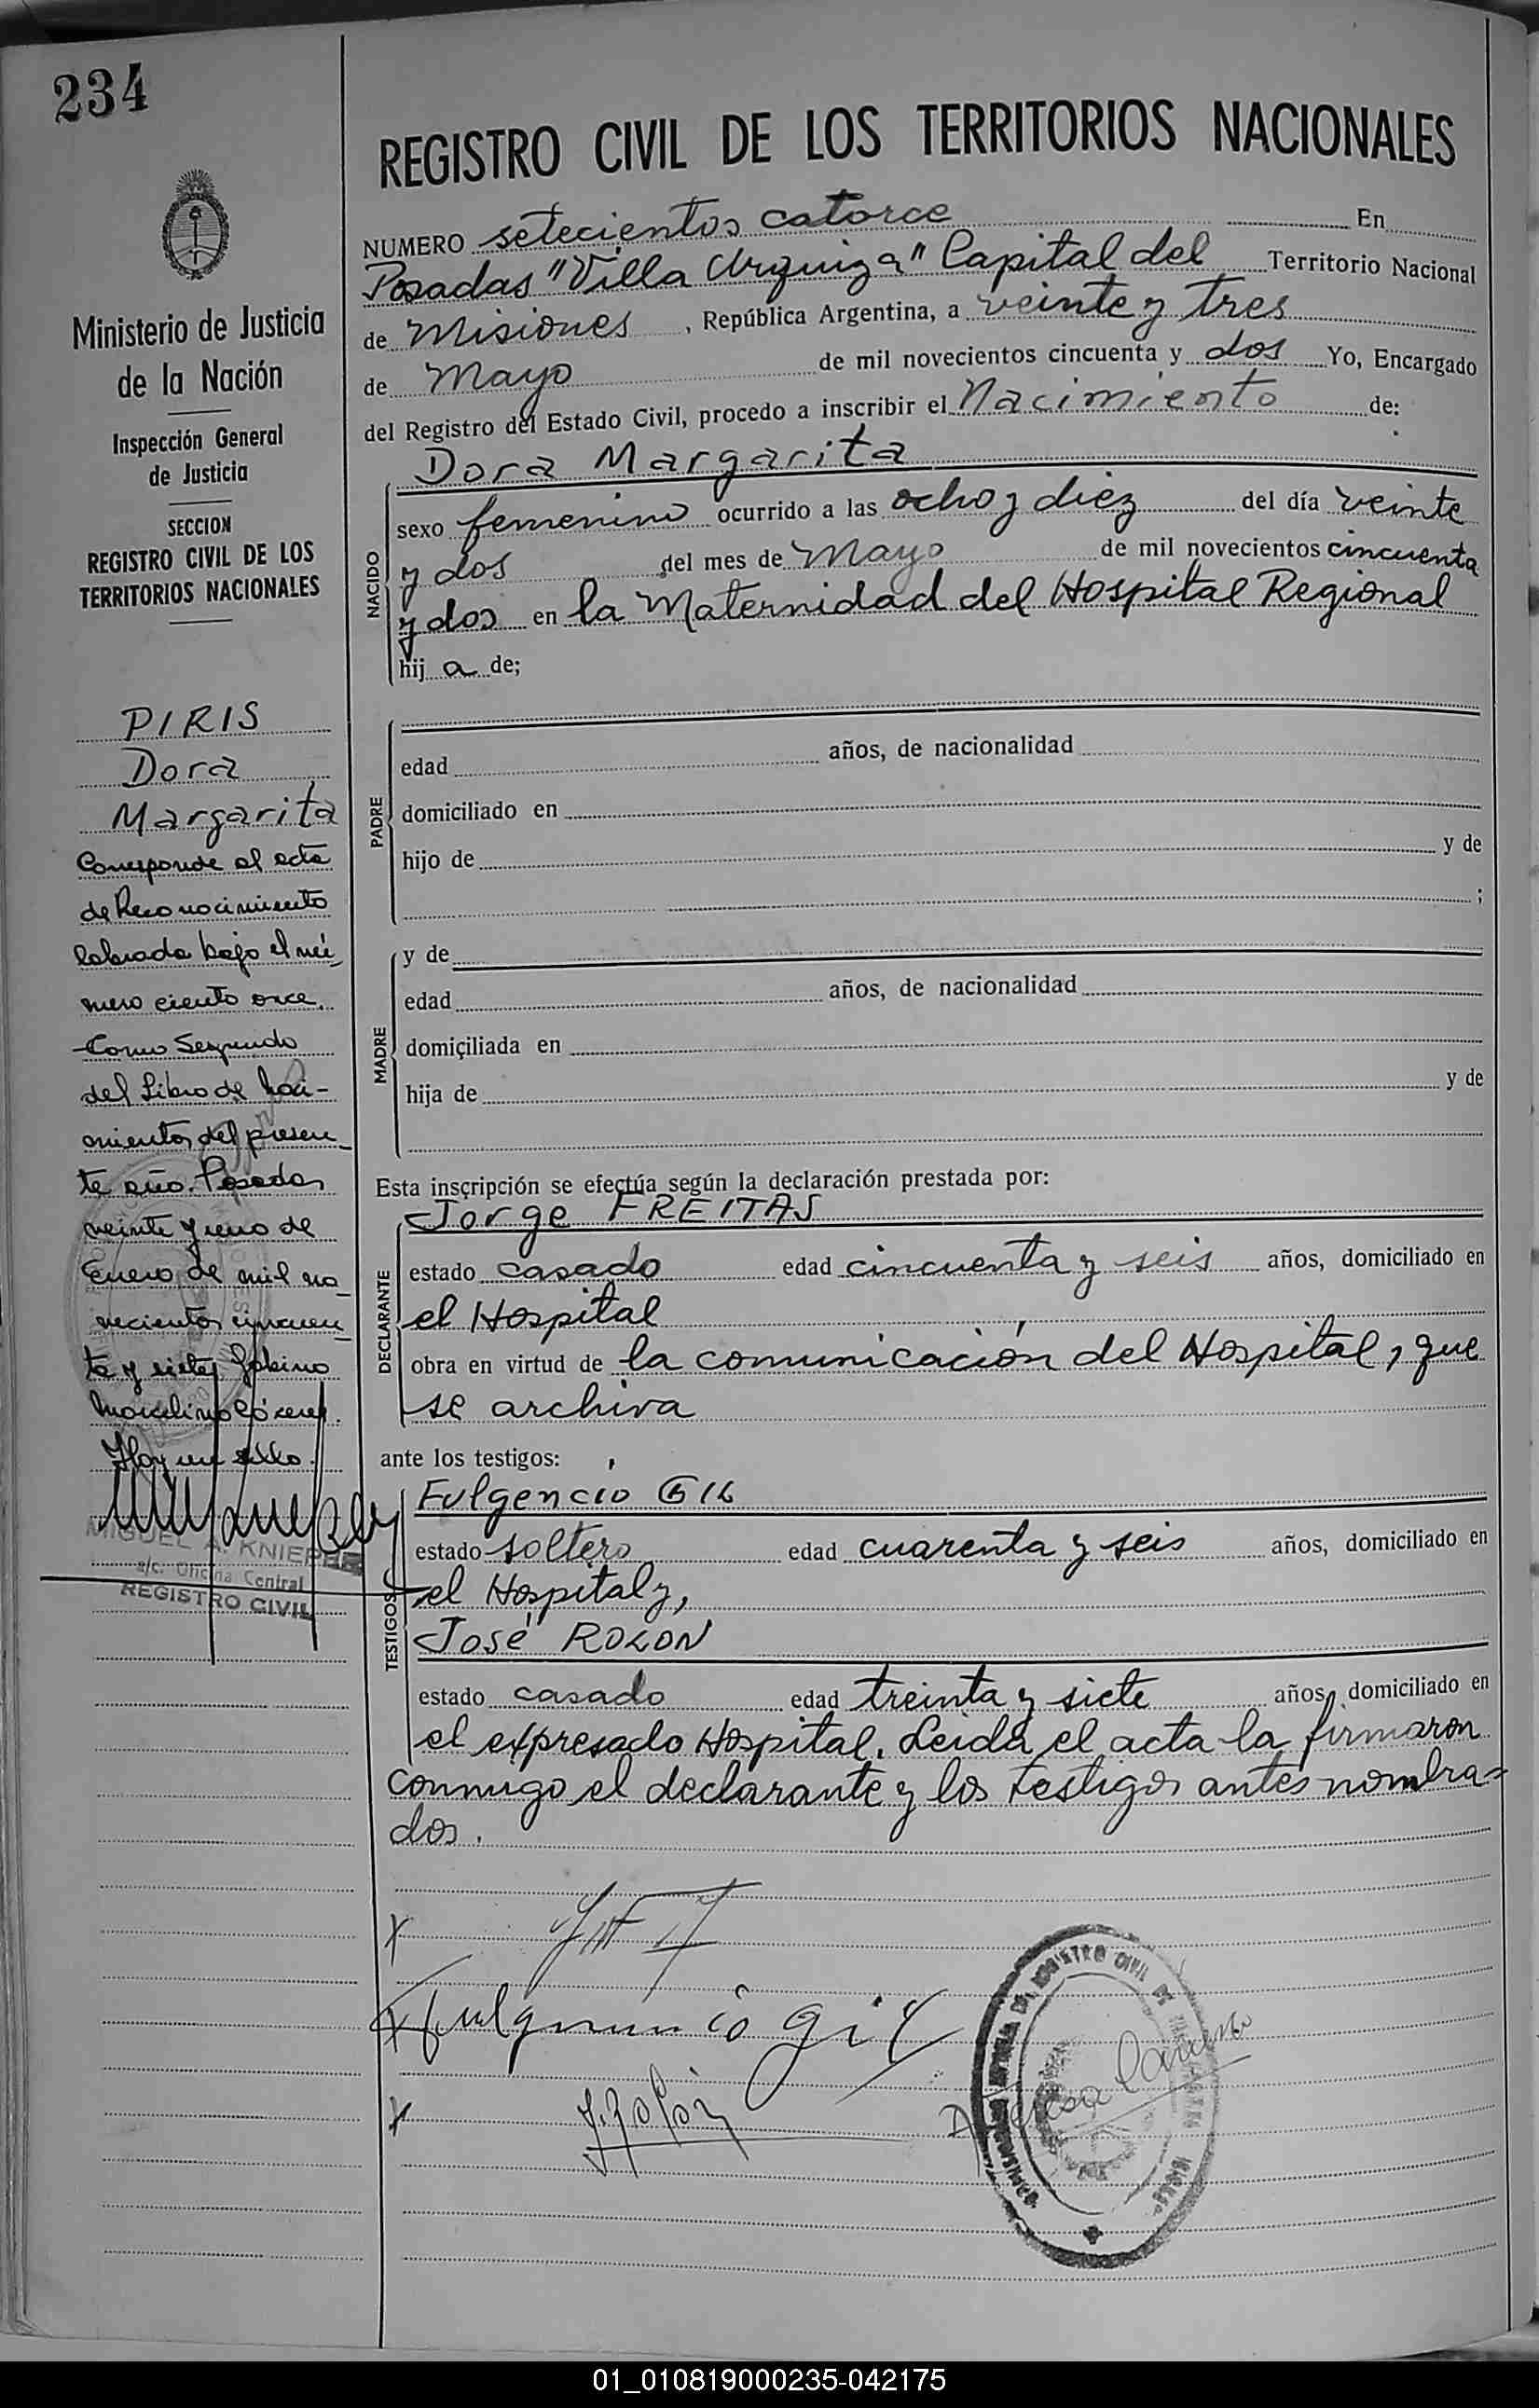 234
Ministerio de Justicia
de la Nación
Inspección General
de Justicia
SECCION
REGISTRO CIVIL DE LOS
TERRITORIOS NACIONALES
PIRIS
Dora
Margarita
Corresponde al acta
de Reconocimiento
labrada bajo el nú-
mero ciento once
Tomo Segundo
del Libro de Naci-
mientos del presen-
te año. Posadas
veinte y uno de
Enero de mil no-
vecientos cincuen-
ta y siete
Hay un sello.
MIGUEL A. KNIEPER
a/c. Oficina Central
REGISTRO CIVIL
REGISTRO CIVIL DE LOS TERRITORIOS NACIONALES
NUMERO setecientos catorce En
Posadas "Villa Urquiza" Capital del Territorio Nacional
de Misiones, República Argentina, a veinte y tres
de Mayo de mil novecientos cincuenta y dos Yo, Encargado
del Registro del Estado Civil, procedo a inscribir el Nacimiento de:
NACIDO
Dora Margarita
sexo femenino ocurrido a las ocho y diez del día veinte
y dos del mes de Mayo de mil novecientos cincuenta
y dos en la Maternidad del Hospital Regional
hij a de;
PADRE
edad años, de nacionalidad
domiciliado en
hijo de y de
;
MADRE
y de
edad años, de nacionalidad
domiciliada en
hija de y de
Esta inscripción se efectúa según la declaración prestada por:
DECLARANTE
Jorge FREITAS
estado casado edad cincuenta y seis años, domiciliado en
el Hospital
obra en virtud de la comunicación del Hospital, que
se archiva
ante los testigos:
TESTIGOS
Fulgencio GIL
estado soltero edad cuarenta y seis años, domiciliado en
el Hospital y,
José ROLON
estado casado edad treinta y siete años, domiciliado en
el expresado Hospital. Leida el acta la firmaron
conmigo el declarante y los testigos antes nombra-
dos.
Fulgencio Gil
J. Rolón
01_010819000235-042175